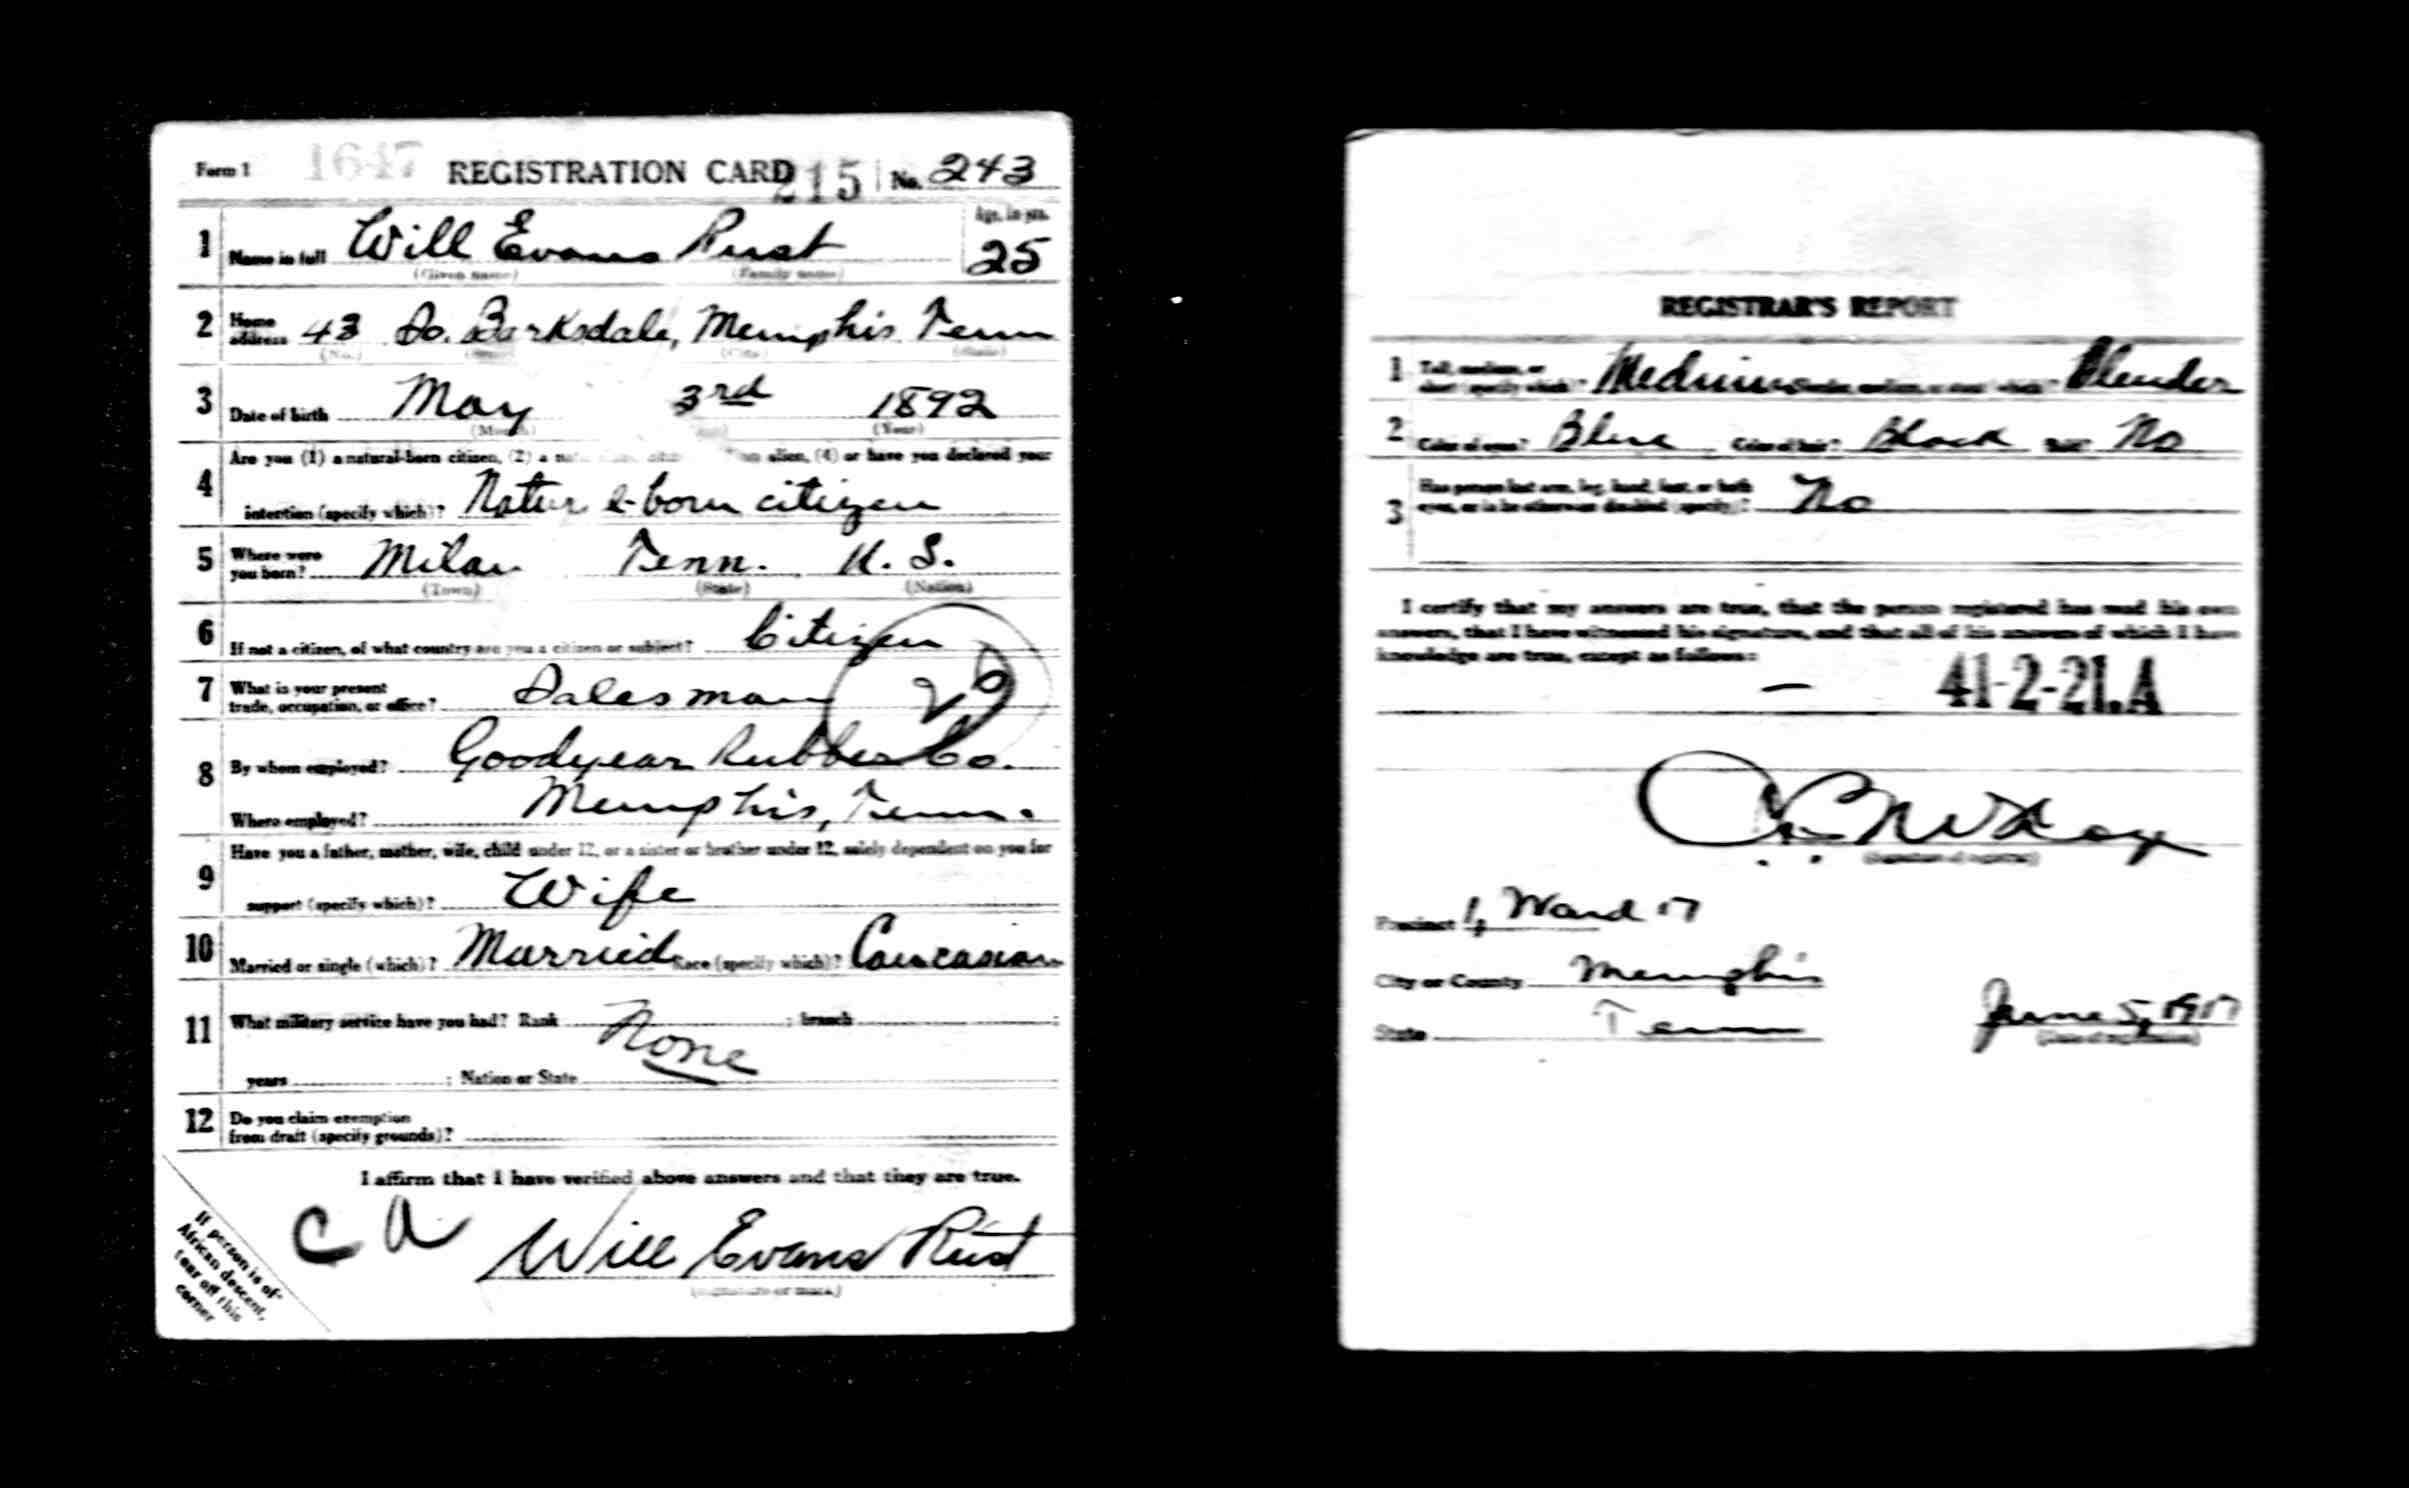 Form 1 1647 REGISTRATION CARD 215 No. 243
1 Name in full Will Evans Rust Age, in yrs. 25
(Given name) (Family name)
2 Home address 43 So. Barksdale, Memphis Tenn
(No.) (Street) (City) (State)
3 Date of birth May 3rd 1892
(Month) (Day) (Year)
Are you (1) a natural-born citizen, (2) a alien, (4) or have you declared your
4 intention (specify which)? Natur l-born citizen
5 Where were you born? Milan Tenn. U. S.
(Town) (State) (Nation)
6 If not a citizen, of what country are you a citizen or subject? Citizen
7 What is your present trade, occupation, or office? Salesman 29
8 By whom employed? Goodyear Rubber Co.
Where employed? Memphis, Tenn.
9 Have you a father, mother, wife, child under 12, or a sister or brother under 12, solely dependent on you for
support (specify which)? Wife
10 Married or single (which)? Married Race (specify which)? Caucasian
11 What military service have you had? Rank None ; branch ;
years ; Nation or State
12 Do you claim exemption
from draft (specify grounds)?
I affirm that I have verified above answers and that they are true.
C A Will Evans Rust
(Signature or mark)
If person is of
African descent,
tear off this
corner
REGISTRAR'S REPORT
1 Tall, medium, or short (specify which)? Medium Slender
2 Color of eyes? Blue Color of hair? Black Bald? No
3 Has person lost arm, leg, hand, foot, or both
eyes, or is he otherwise disabled (specify)? No
I certify that my answers are true, that the person registered has read his own
answers, that I have witnessed his signature, and that all of his answers of which I have
knowledge are true, except as follows:
— 41-2-21.A
(Signature of registrar)
Precinct 1, Ward 17
City or County Memphis
State Tenn June 5, 1917
(Date of registration)